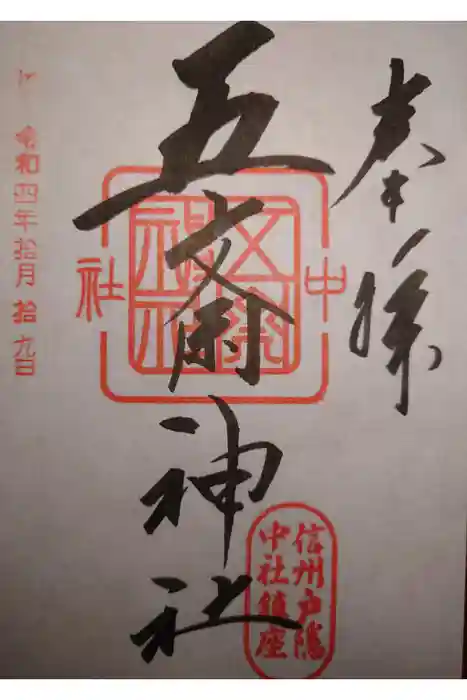 奉拝
五斎神社
中
社
五斎神社
信州戸隠
中社鎮座
令和四年拾月拾九日